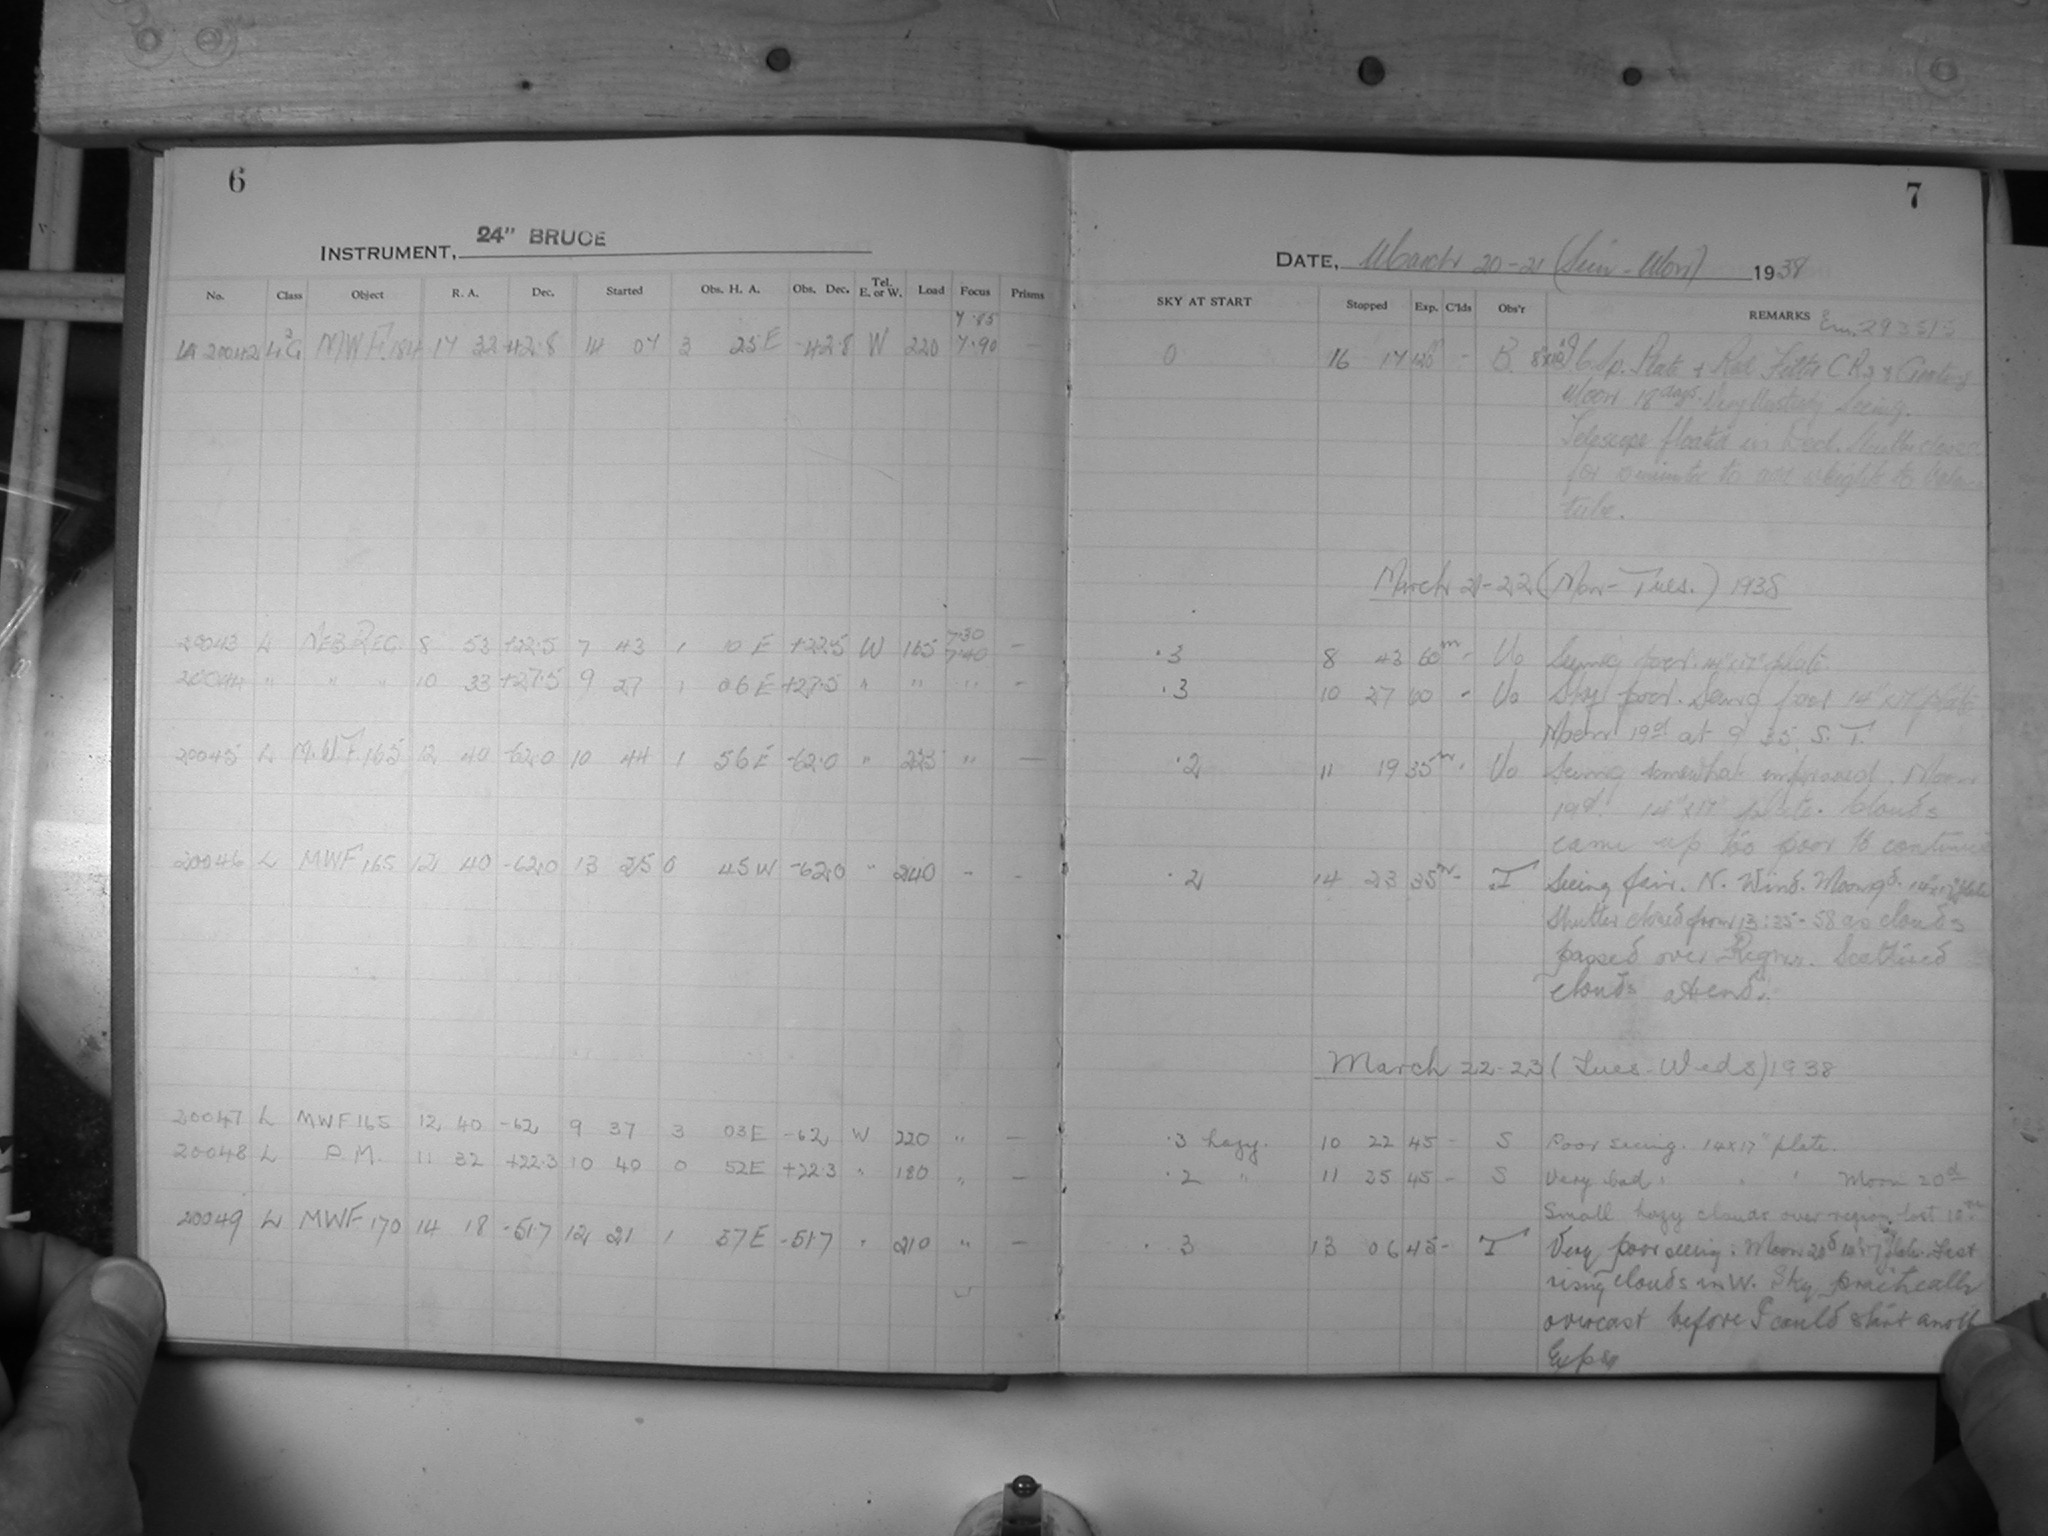 6
INSTRUMENT, 24" BRUCE
No. Class Object R. A. Dec. Started Obs. H. A. Obs. Dec. Tel. E. or W. Load Focus Prisms
7.85
20042 MWF.184 17 32 -42.8 14 07 3 25E -42.8 W 220 7.90 —
20043 L NEB REG. 8 53 +22.5 7 43 1 10 E +22.5 W 165 7.30 7.40 —
20044 " " " 10 33 +27.5 9 27 1 06 E +27.5 " " " -
20045 L M.W.F. 165 12 40 -62.0 10 44 1 56 E -62.0 " 225 " —
20046 L MWF 165 12 40 -62.0 13 25 0 45 W -62.0 " 240 - -
20047 L MWF 165 12 40 -62 9 37 3 03E -62 W 220 " —
20048 L P.M. 11 32 +22.3 10 40 0 52E +22.3 " 180 " —
20049 L MWF 170 14 18 -51.7 12 21 1 37E -51.7 " 210 " —
7
DATE, March 20-21 (Sun - Mon) 1938
SKY AT START Stopped Exp. C'lds Obs'r REMARKS
0 16 17 120 - B. 8x10 Sp. Plate & Red Filter
Moon 18 days. Very Unsteady Seeing.
Telescope floated in Decl. Shutter closed
for minutes to add weight to
tube.
March 21-22 (Mon-Tues.) 1938
.3 8 43 60m - Uo Seeing poor. 14"x17" plate
.3 10 27 60 - Uo Sky poor. Seeing poor 14 x17 plate
Moon 19d at 9 35 S. T.
.2 11 19 35m - Uo Seeing somewhat improved. Moon
19d. 14"x17" plate. Clouds
came up too poor to continue
.2 14 23 35m - T Seeing fair. N. Wind. Moon 19d. 14"x17" plate
Shutter closed from 13:25-58 as clouds
passed over Region. Scattered
clouds at end.
March 22-23 (Tues-Weds) 1938
.3 hazy. 10 22 45 - S Poor seeing. 14x17" plate.
.2 " 11 25 45 - S Very bad " " " Moon 20d
Small hazy clouds over region last 10m
.3 13 06 45 - T Very poor seeing. Moon 20d 14"x17" plate. Fast
rising clouds in W. Sky practically
overcast before I could start anoth
Exp